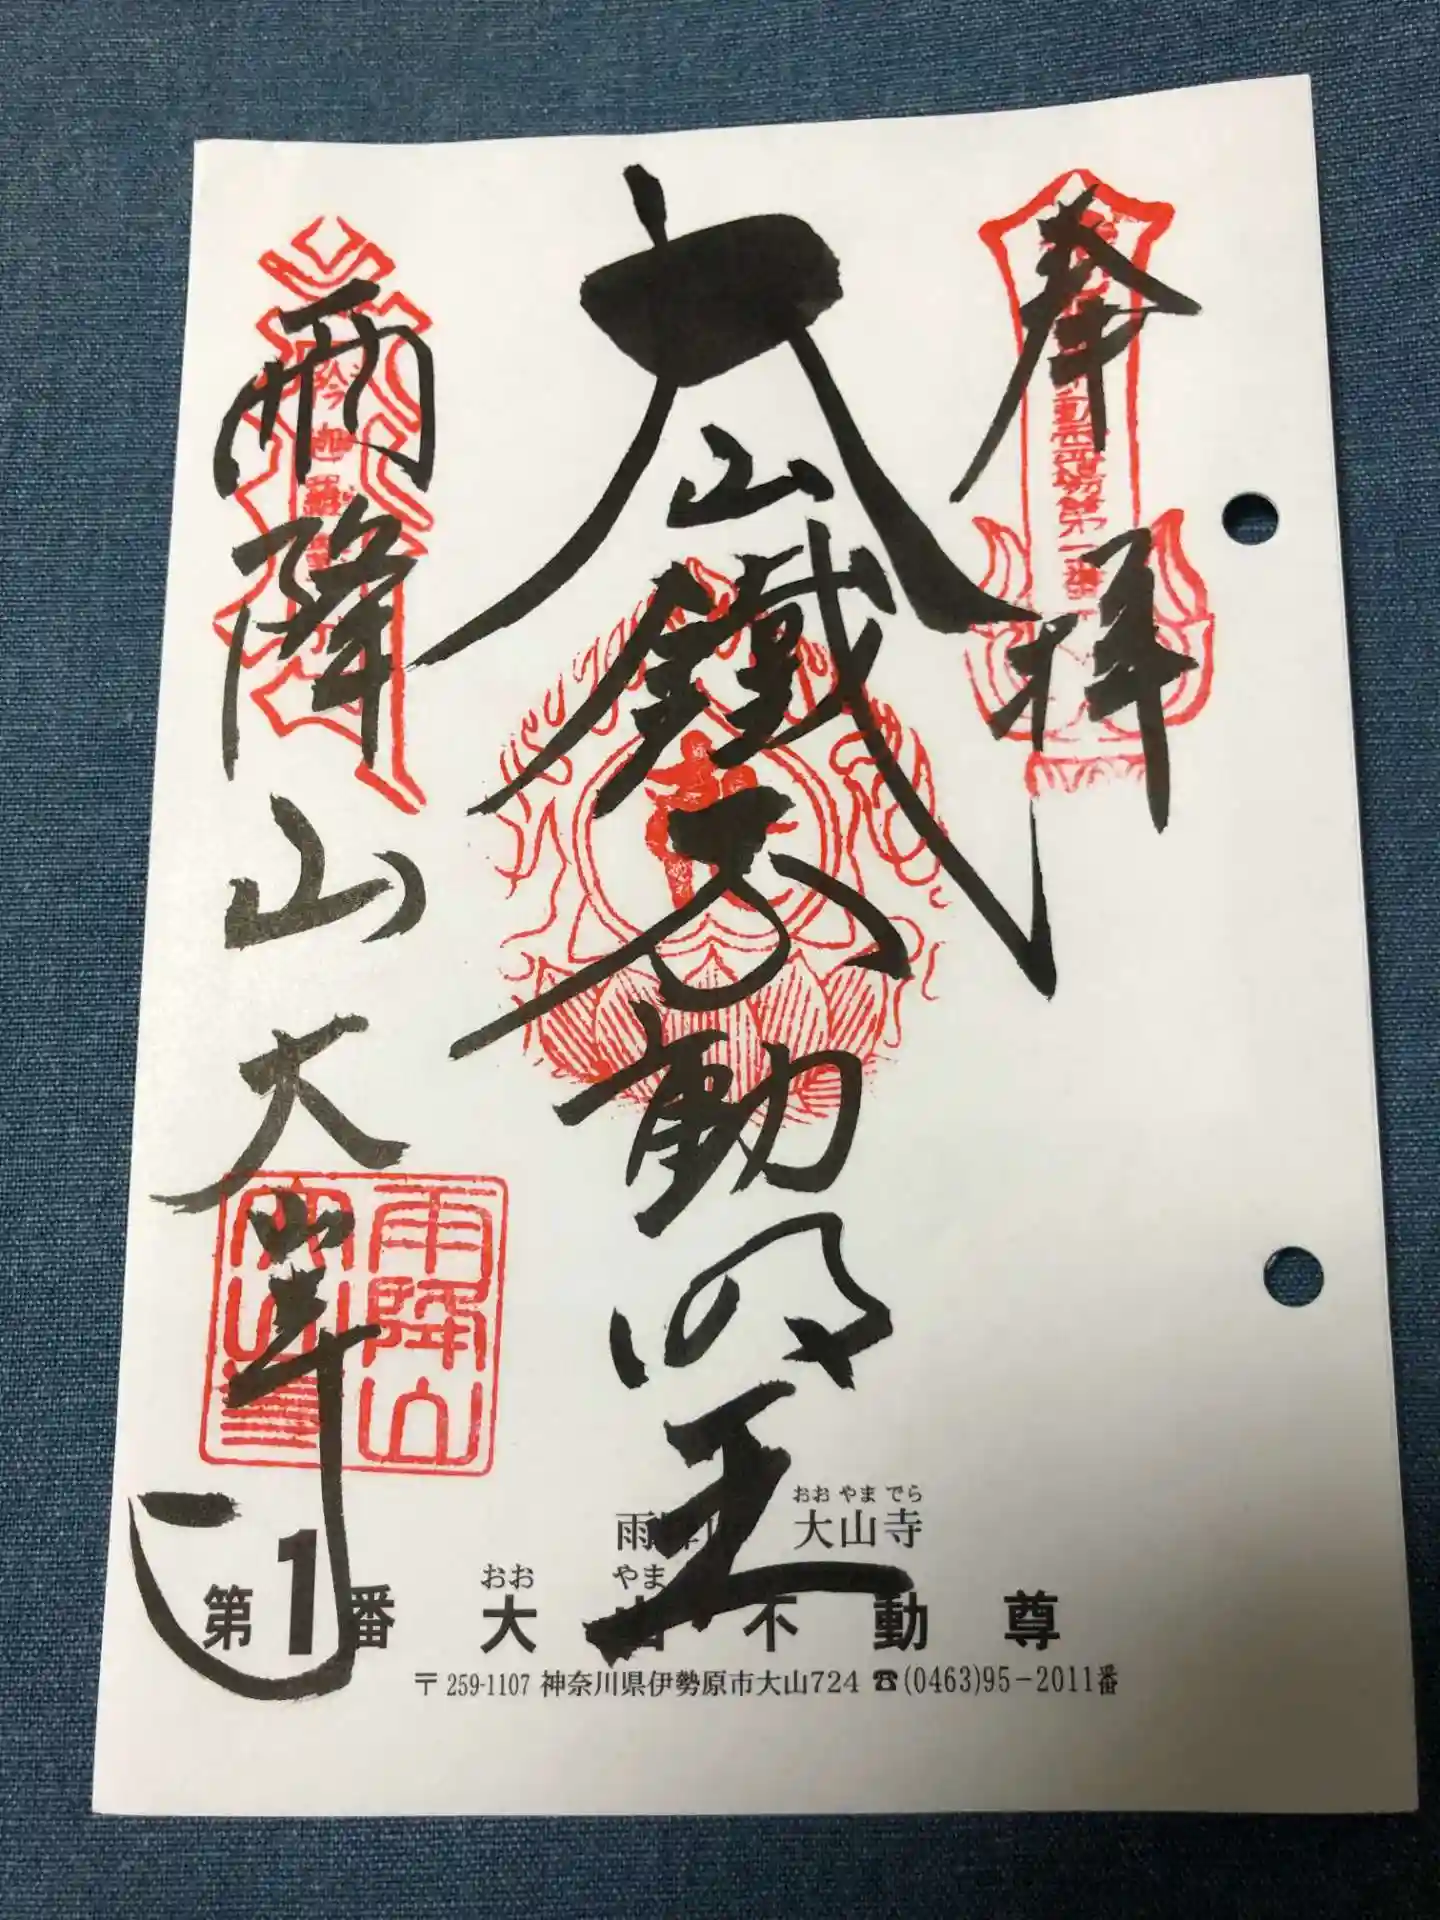 奉拝
大山鐵不動明王
雨降山大山寺
雨降山
おおやまでら
大山寺
おお やま
第1番 大山不動尊
〒259-1107 神奈川県伊勢原市大山724 ☎(0463)95-2011番